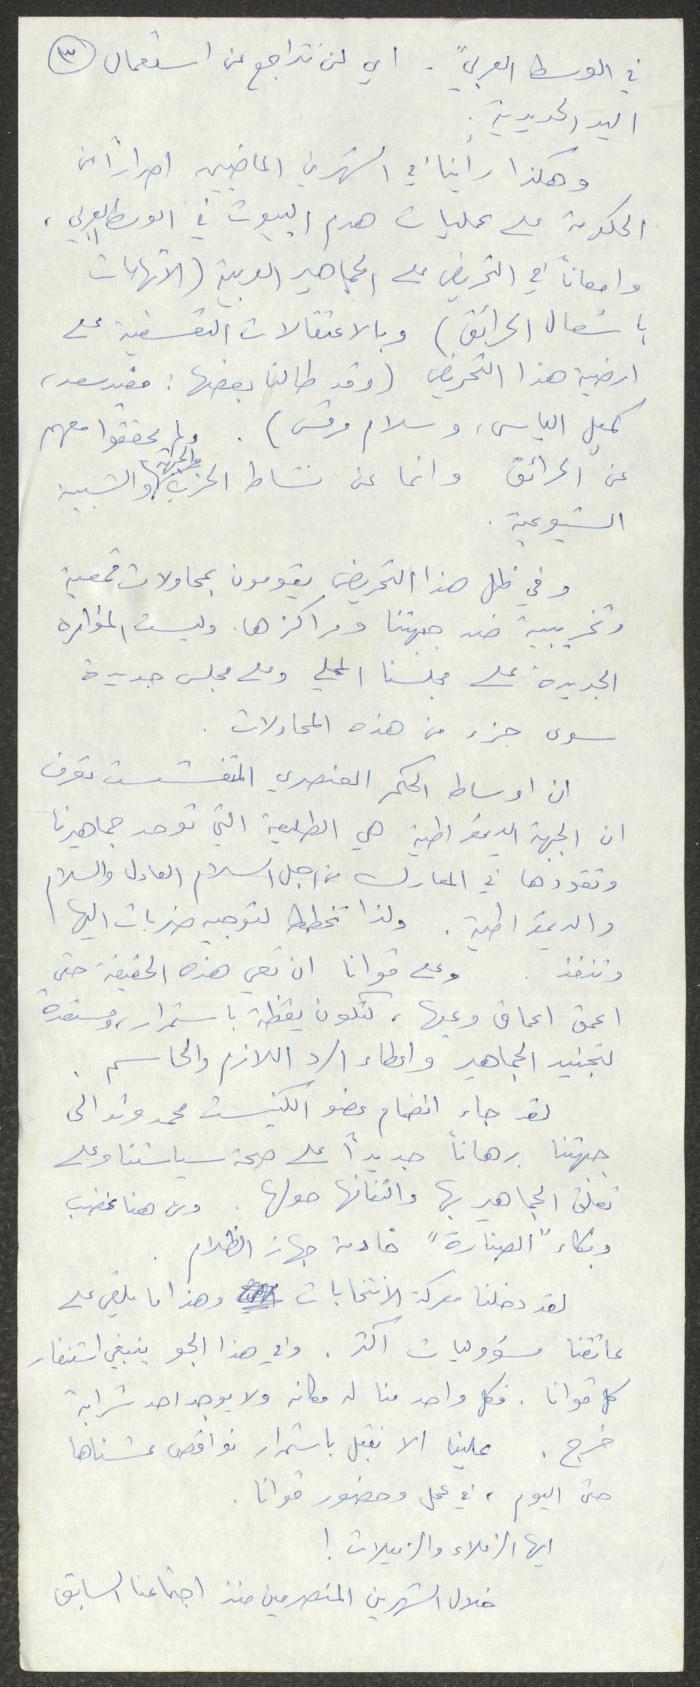 في الوسط العربي". اي لن نتراجع عن استعمال (٣)
اليد الحديدية.
وهكذا رأينا في الشهرين الماضيين اصراراً من
الحكومة على عمليات هدم البيوت في الوسط العربي،
وامعاناً في التحريض على الجماهير العربية (الاتهامات
باشعال الحرائق) وبالاعتقالات التعسفية على
ارضية هذا التحريض (وقد طالنا بعضها: مفيد سعد،
كميل الياس، وسلام مرقس). ولم يحققوا معهم
عن الحرائق وانما عن نشاط الحزب والجبهة والشبيبة
الشيوعية.
وفي ظل هذا التحريض يقومون بمحاولات قمعية
وتخريبية ضد جبهتنا ومراكزها. وليست المؤامرة
الجديدة على مجلسنا المحلي وعلى مجلس جديدة
سوى جزء من هذه المحاولات.
ان اوساط الحكم العنصري تعرف
ان الجبهة الديمقراطية هي الطليعة التي توحد جماهيرنا
وتقودها في المعارك من اجل السلام العادل والسلام
والديمقراطية. ولذا تخطط لتوجيه ضربات اليها
وتنفذ. وعلى قوانا ان تعي هذه الحقيقة حتى
اعمق اعماق وعيها، لتكون يقظة باستمرار، ومستعدة
لتجنيد الجماهير واعطاء الرد اللازم والحاسم.
لقد جاء انضمام عضو الكنيست محمد وتد الى
جبهتنا برهاناً جديداً على صحة سياستنا وعلى
تعلق الجماهير بها والتفافها حولها. ومن هنا غضب
وبكاء "الصنارة" خادمة جهاز الظلام.
لقد دخلنا معركة الانتخابات وهذا ما يلقي على
عاتقنا مسؤوليات اكثر. وفي هذا الجو ينبغي استنفار
كل قوانا. فكل واحد منا له مكانه ولا يوجد احد شرابة
خرج. علينا الا نقبل باستمرار نواقص عشناها
حتى اليوم، في عمل وحضور قوانا.
ايها الزملاء والزميلات!
خلال الشهرين المنصرمين منذ اجتماعنا السابق